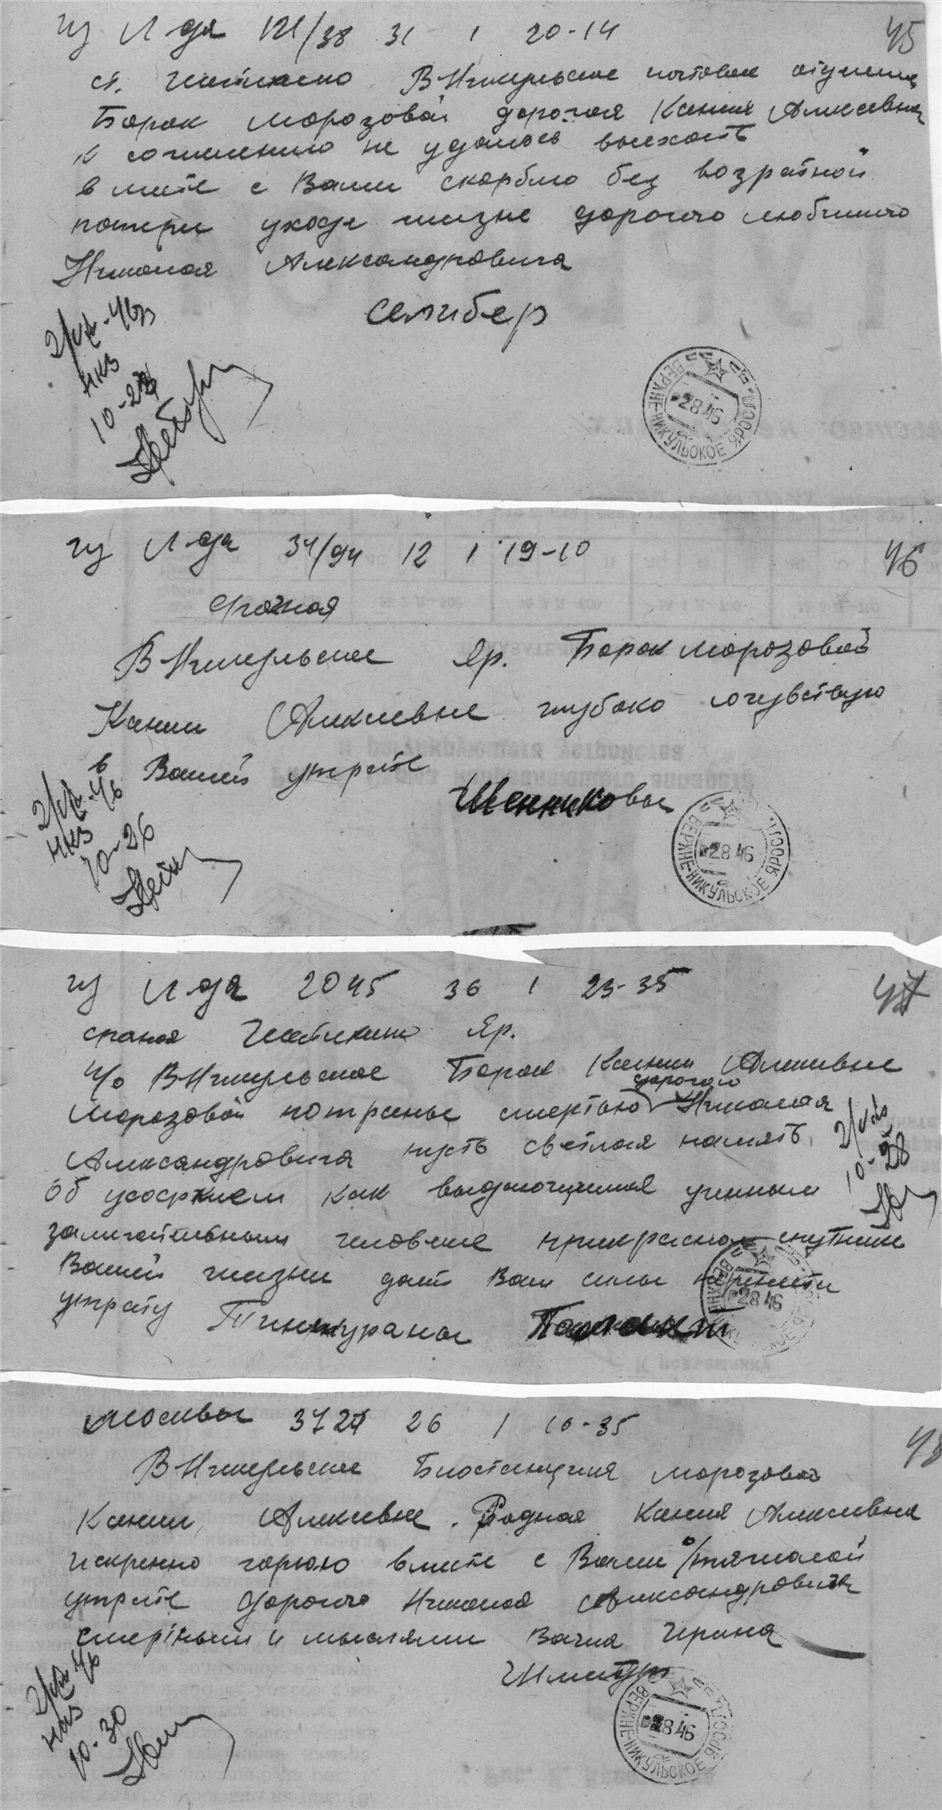 из Л-да 121/38 31 1 20-14
45
ст. Шестихино В Никульское почтовое отделение
Борок Морозовой дорогая Ксения Алексеевна
к сожалению не удалось выехать
вместе с Вами скорблю без возратной
потери уходе жизне дорогого любимого
Николая Александровича
Селибер
2/VIII-46
НКЗ
10-24
ВЕРХНЕ-НИКУЛЬСКОЕ ЯРОСЛ.
-2 8 46
из Л-да 34/94 12 1 19-10
46
срочная
В Никульское Яр. Борок Морозовой
Ксении Алексеевне глубоко сочувствую
в Вашей утрате
Шенниковы
2/VIII-46
НКЗ
10-26
ВЕРХНЕ-НИКУЛЬСКОЕ ЯРОСЛ.
-2 8 46
из Л-да 2045 36 1 23-35
47
срочная Шестихино Яр.
п/о В Никульское Борок Ксении Алексеевне
дорогого
Морозовой потрясены смертью Николая
Александровича пусть светлая память
об усопшем как выдающимся ученым
замечательным человеке прекрасном спутнике
Вашей жизни даст Вам силы перенести
утрату
2/VIII
10-28
-2 8 46
Москвы 3727 26 1 10-35
48
В Никульское Биостанция Морозовой
Ксении Алексеевне. Родная Ксения Алексеевна
искренно горюю вместе с Вами о тяжолой
утрате дорогого Николая Александровича
мыслями Ваша Ирина
2/VIII 46
НКЗ
10-30
ВЕРХНЕ-НИКУЛЬСКОЕ ЯРОСЛ.
-2 8 46